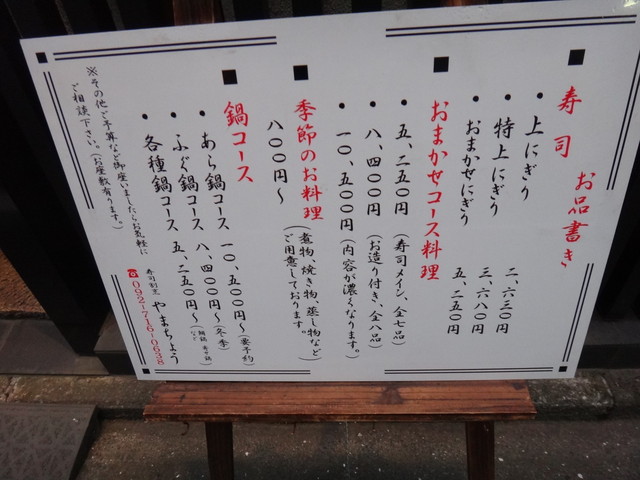 お品書き
■ 寿司
・上にぎり 二、六三〇円
・特上にぎり 三、六八〇円
・おまかせにぎり 五、二五〇円
■ おまかせコース料理
・五、二五〇円(寿司メイン、全七品)
・八、四〇〇円(お造り付き、全八品)
・一〇、五〇〇円(内容が濃くなります。)
■ 季節のお料理
八〇〇円~
(煮物、焼き物、蒸し物など
ご用意しております。)
■ 鍋コース
・あら鍋コース 一〇、五〇〇円~(要予約)
・ふぐ鍋コース 八、四〇〇円~(冬季)
・各種鍋コース 五、二五〇円~
※その他ご予算など御座いましたらお気軽に
ご相談下さい。(お座敷有ります。)
寿司割烹 やまちょう
☎092-716-0638